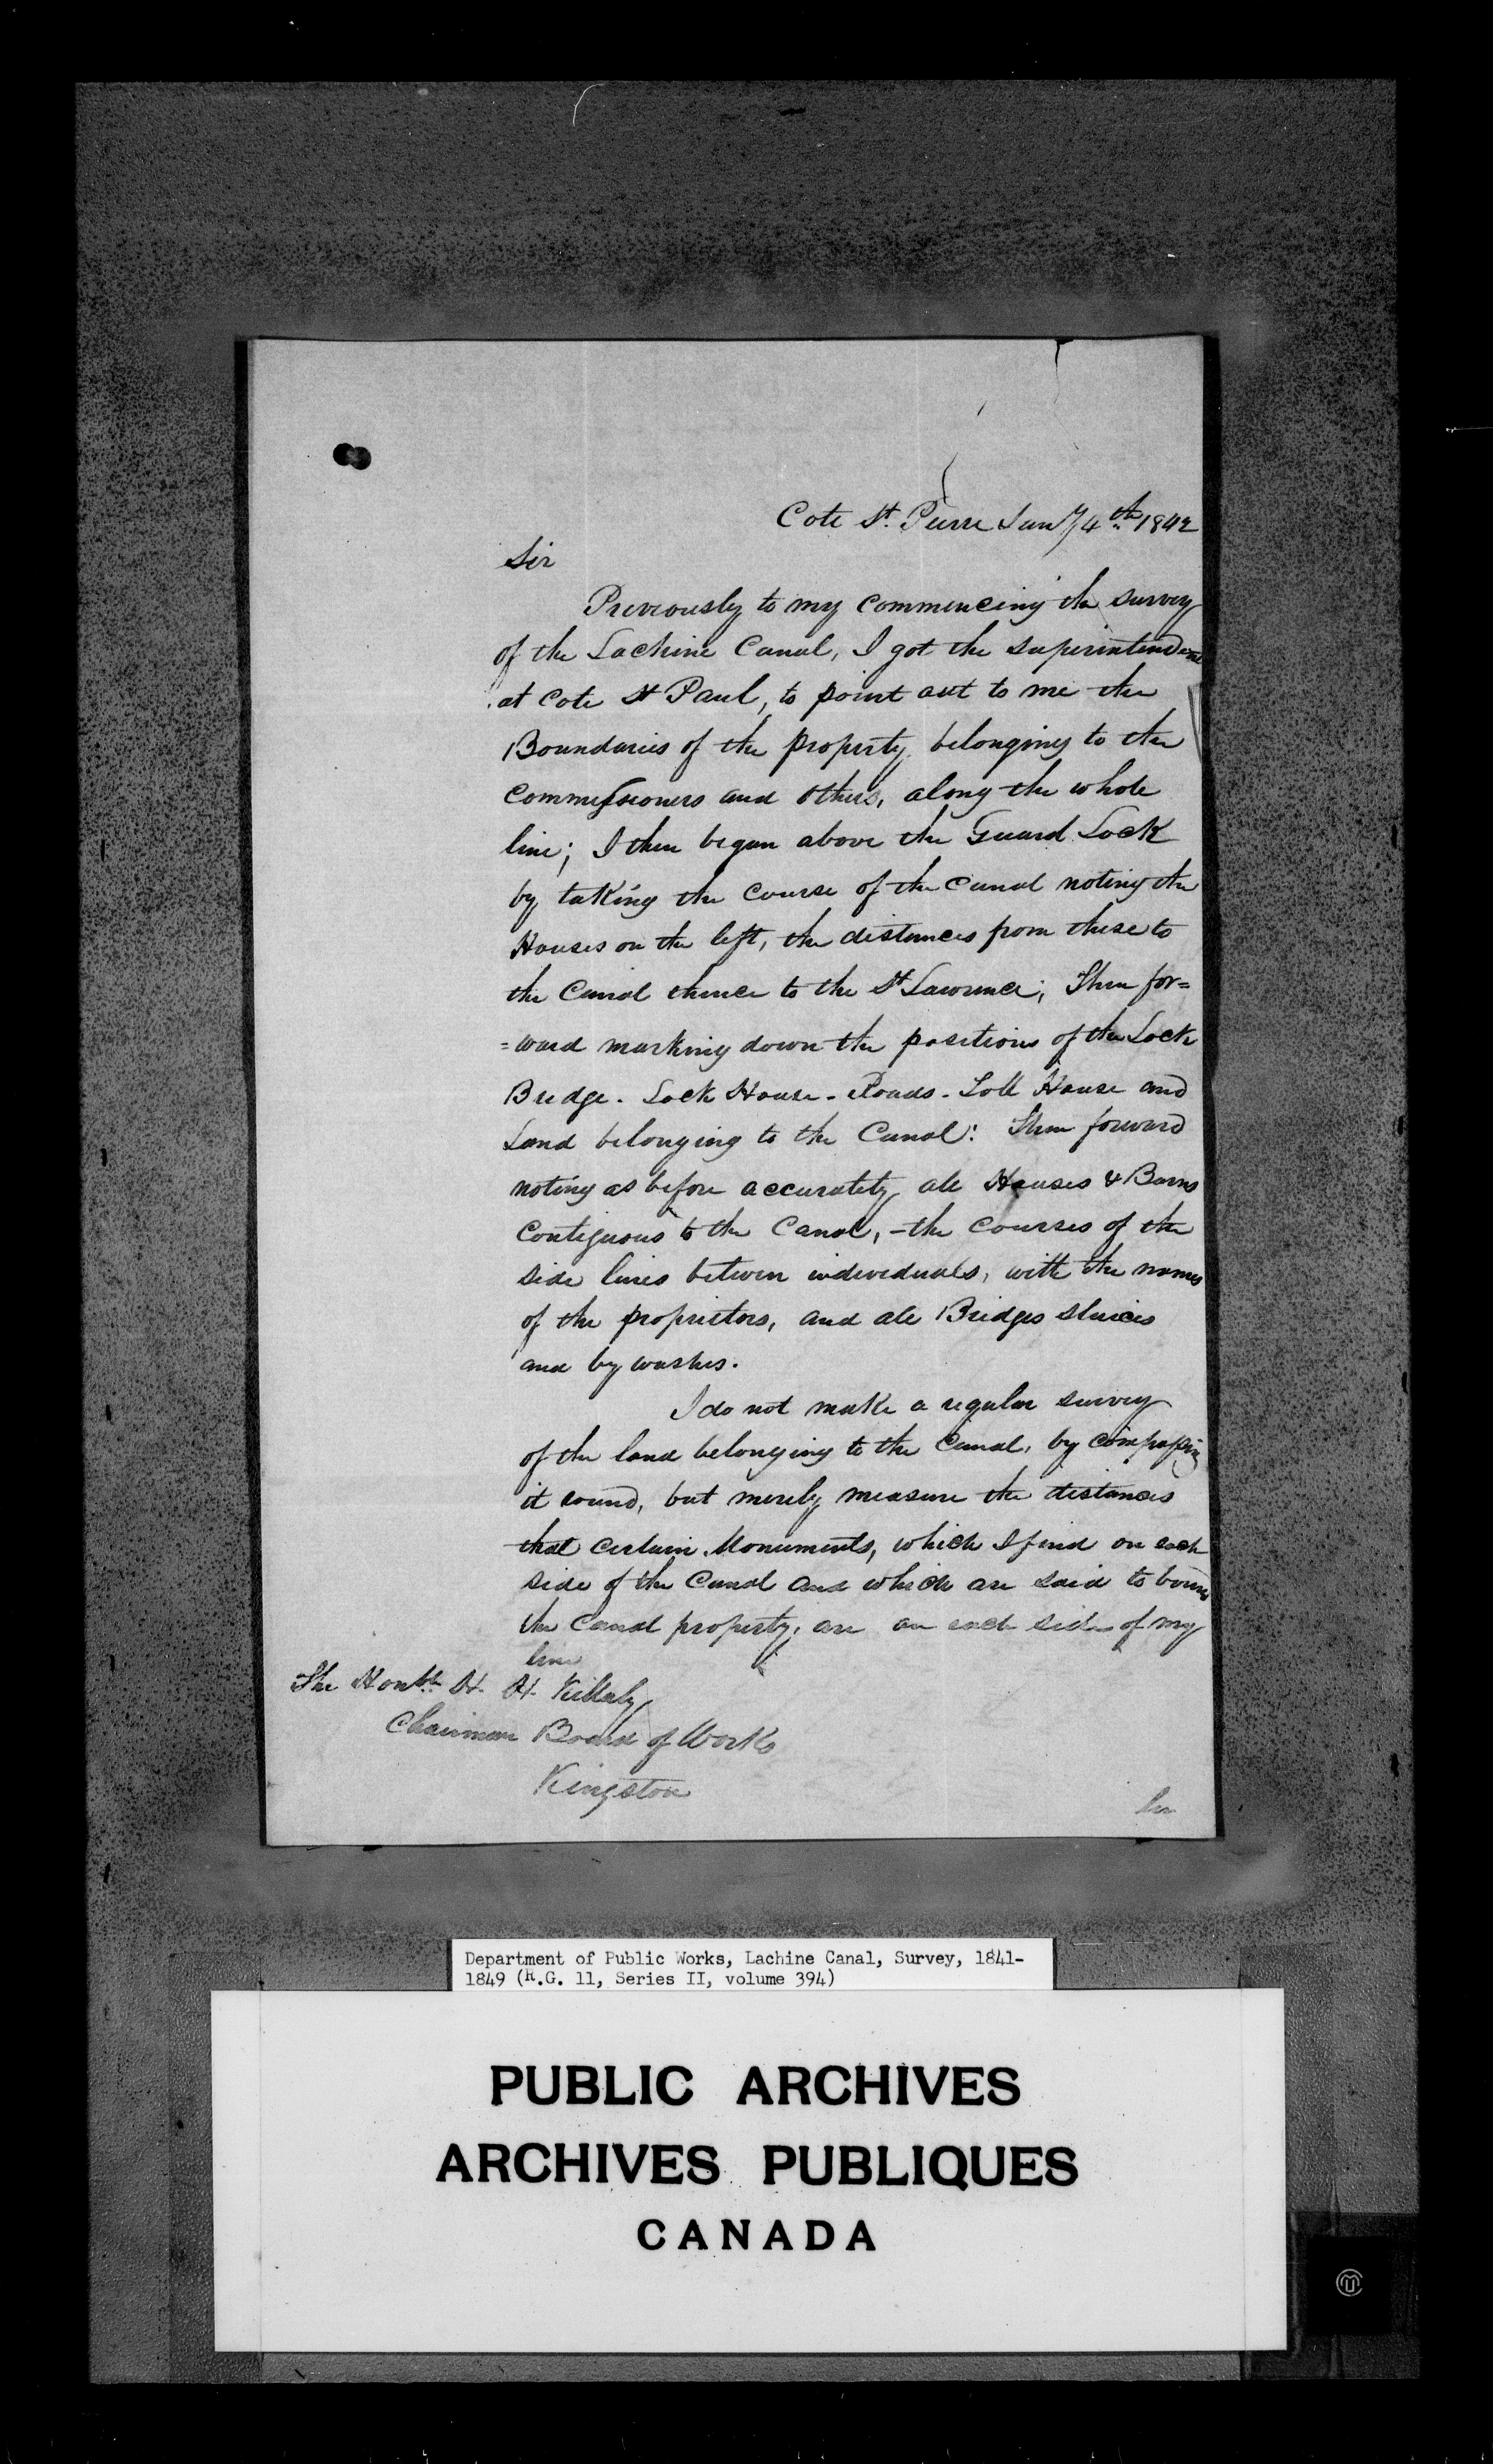 Cote St. Pierre Jany 4th 1842
Sir
Previously to my commencing the survey
of the Lachine Canal, I got the superintendent
at Cote St Paul, to point out to me the
Boundaries of the property belonging to the
Commissioners and others, along the whole
line; I then began above the Guard Lock
by taking the course of the Canal noting the
Houses on the left, the distances from these to
the Canal thence to the St Lawrence; Then for=
=ward marking down the positions of the Lock
Bridge - Lock House - Roads - Toll House and
Land belonging to the Canal: Then forward
noting as before accurately all Houses & Barns
Contiguous to the Canal, - the courses of the
side lines between individuals, with the names
of the proprietors, and all Bridges sluices
and by washes.
I do not make a regular survey
of the land belonging to the Canal, by compassing
it round, but merely measure the distances
that certain Monuments, which I find on each
side of the Canal and which are said to bound
the Canal property, are on each side of my
line
The Honble H. H. Killaly
Chairman Board of Works
Kingston
Department of Public Works, Lachine Canal, Survey, 1841-
1849 (R.G. 11, Series II, volume 394)
PUBLIC ARCHIVES
ARCHIVES PUBLIQUES
CANADA